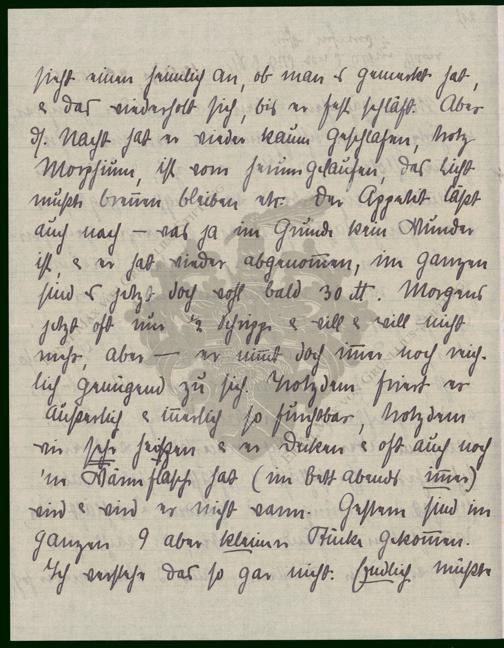 sieht einen heimlich an, ob man es gemerkt hat,
& das wiederholt sich, bis er fest schläft. Aber
ds. Nacht hat er wieder kaum geschlafen, trotz
Morphium, ist vom herumgelaufen, das Licht
mußte breñen bleiben etc. Der Appetit läßt
auch nach — was ja im Grunde kein Wunder
ist, & er hat wieder abgenom̄en, im ganzen
sind es jetzt doch wohl bald 30 ℔. Morgens
jetzt oft nur ½ Schrippe & will & will nicht
mehr, aber — er nim̄t doch im̄er noch reich-
lich genügend zu sich. Trotzdem friert er
äußerlich & innerlich so furchtbar, trotzdem
wir sehr heizen & er Decken & oft auch noch
'ne Wärmflasche hat (im Bett abends im̄er)
wird & wird er nicht warm. Gestern sind im
ganzen 9 aber kleinere Stücke gekom̄en.
Ich verstehe das so gar nicht. Endlich müßte